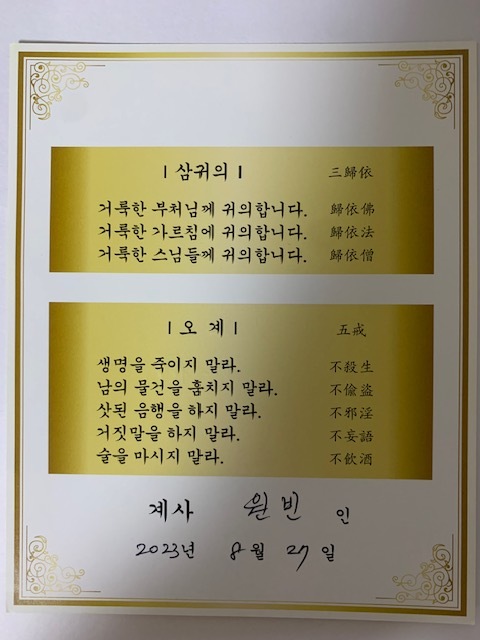 | 삼귀의 | 三歸依
거룩한 부처님께 귀의합니다. 歸依佛
거룩한 가르침에 귀의합니다. 歸依法
거룩한 스님들께 귀의합니다. 歸依僧
| 오 계 | 五戒
생명을 죽이지 말라. 不殺生
남의 물건을 훔치지 말라. 不偸盜
삿된 음행을 하지 말라. 不邪淫
거짓말을 하지 말라. 不妄語
술을 마시지 말라. 不飮酒
계사 원빈 인
2023년 8월 27일